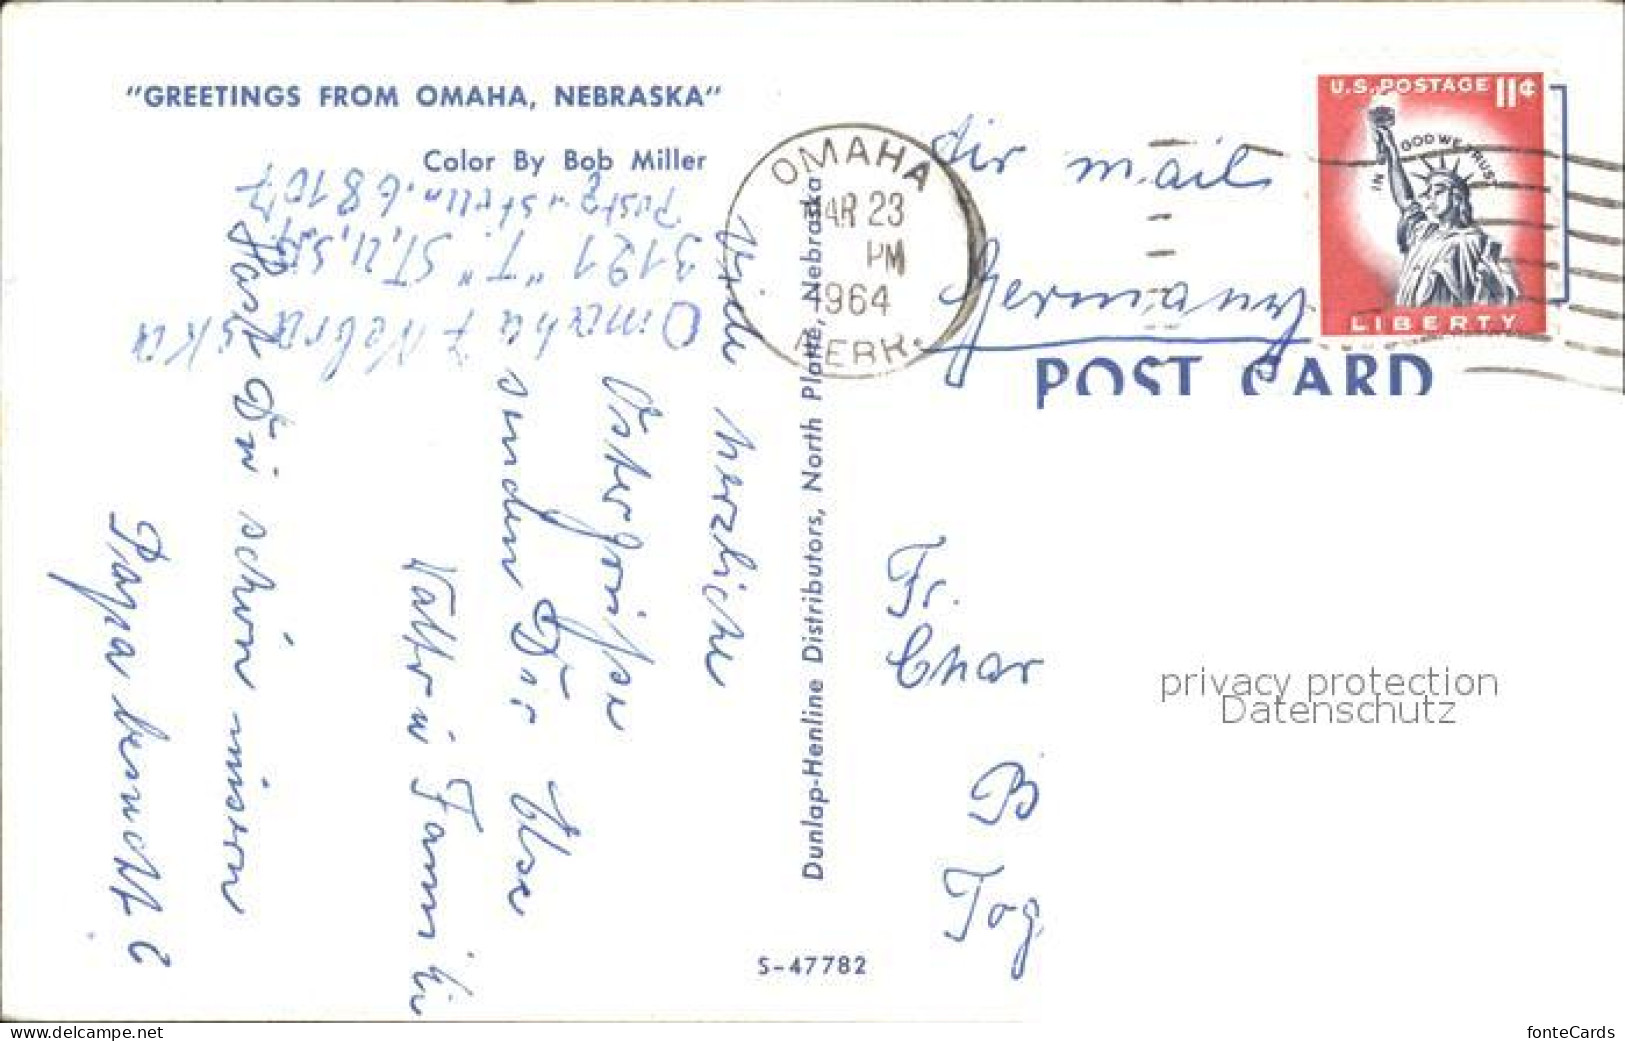 "GREETINGS FROM OMAHA, NEBRASKA"
Color By Bob Miller
Omaha 7 Nebraska
3121 "T" ST, U.S.A.
68107
herzliche
Ostergrüße
senden Dir Else
Walter u Familie
Hast Du schon unseren
Papa besucht?
Dunlap-Henline Distributors, North Platte, Nebraska
S-47782
OMAHA
AR 23
PM
1964
NEBR.
U.S. POSTAGE 11¢
IN GOD WE TRUST
LIBERTY
Air mail
Germany
POST CARD
Fr.
Char
B
Tog
privacy protection
Datenschutz
www.delcampe.net
fonteCards